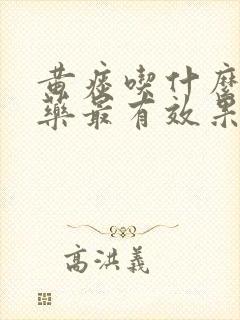 黄疸喫什麼
藥最有效果
高洪義